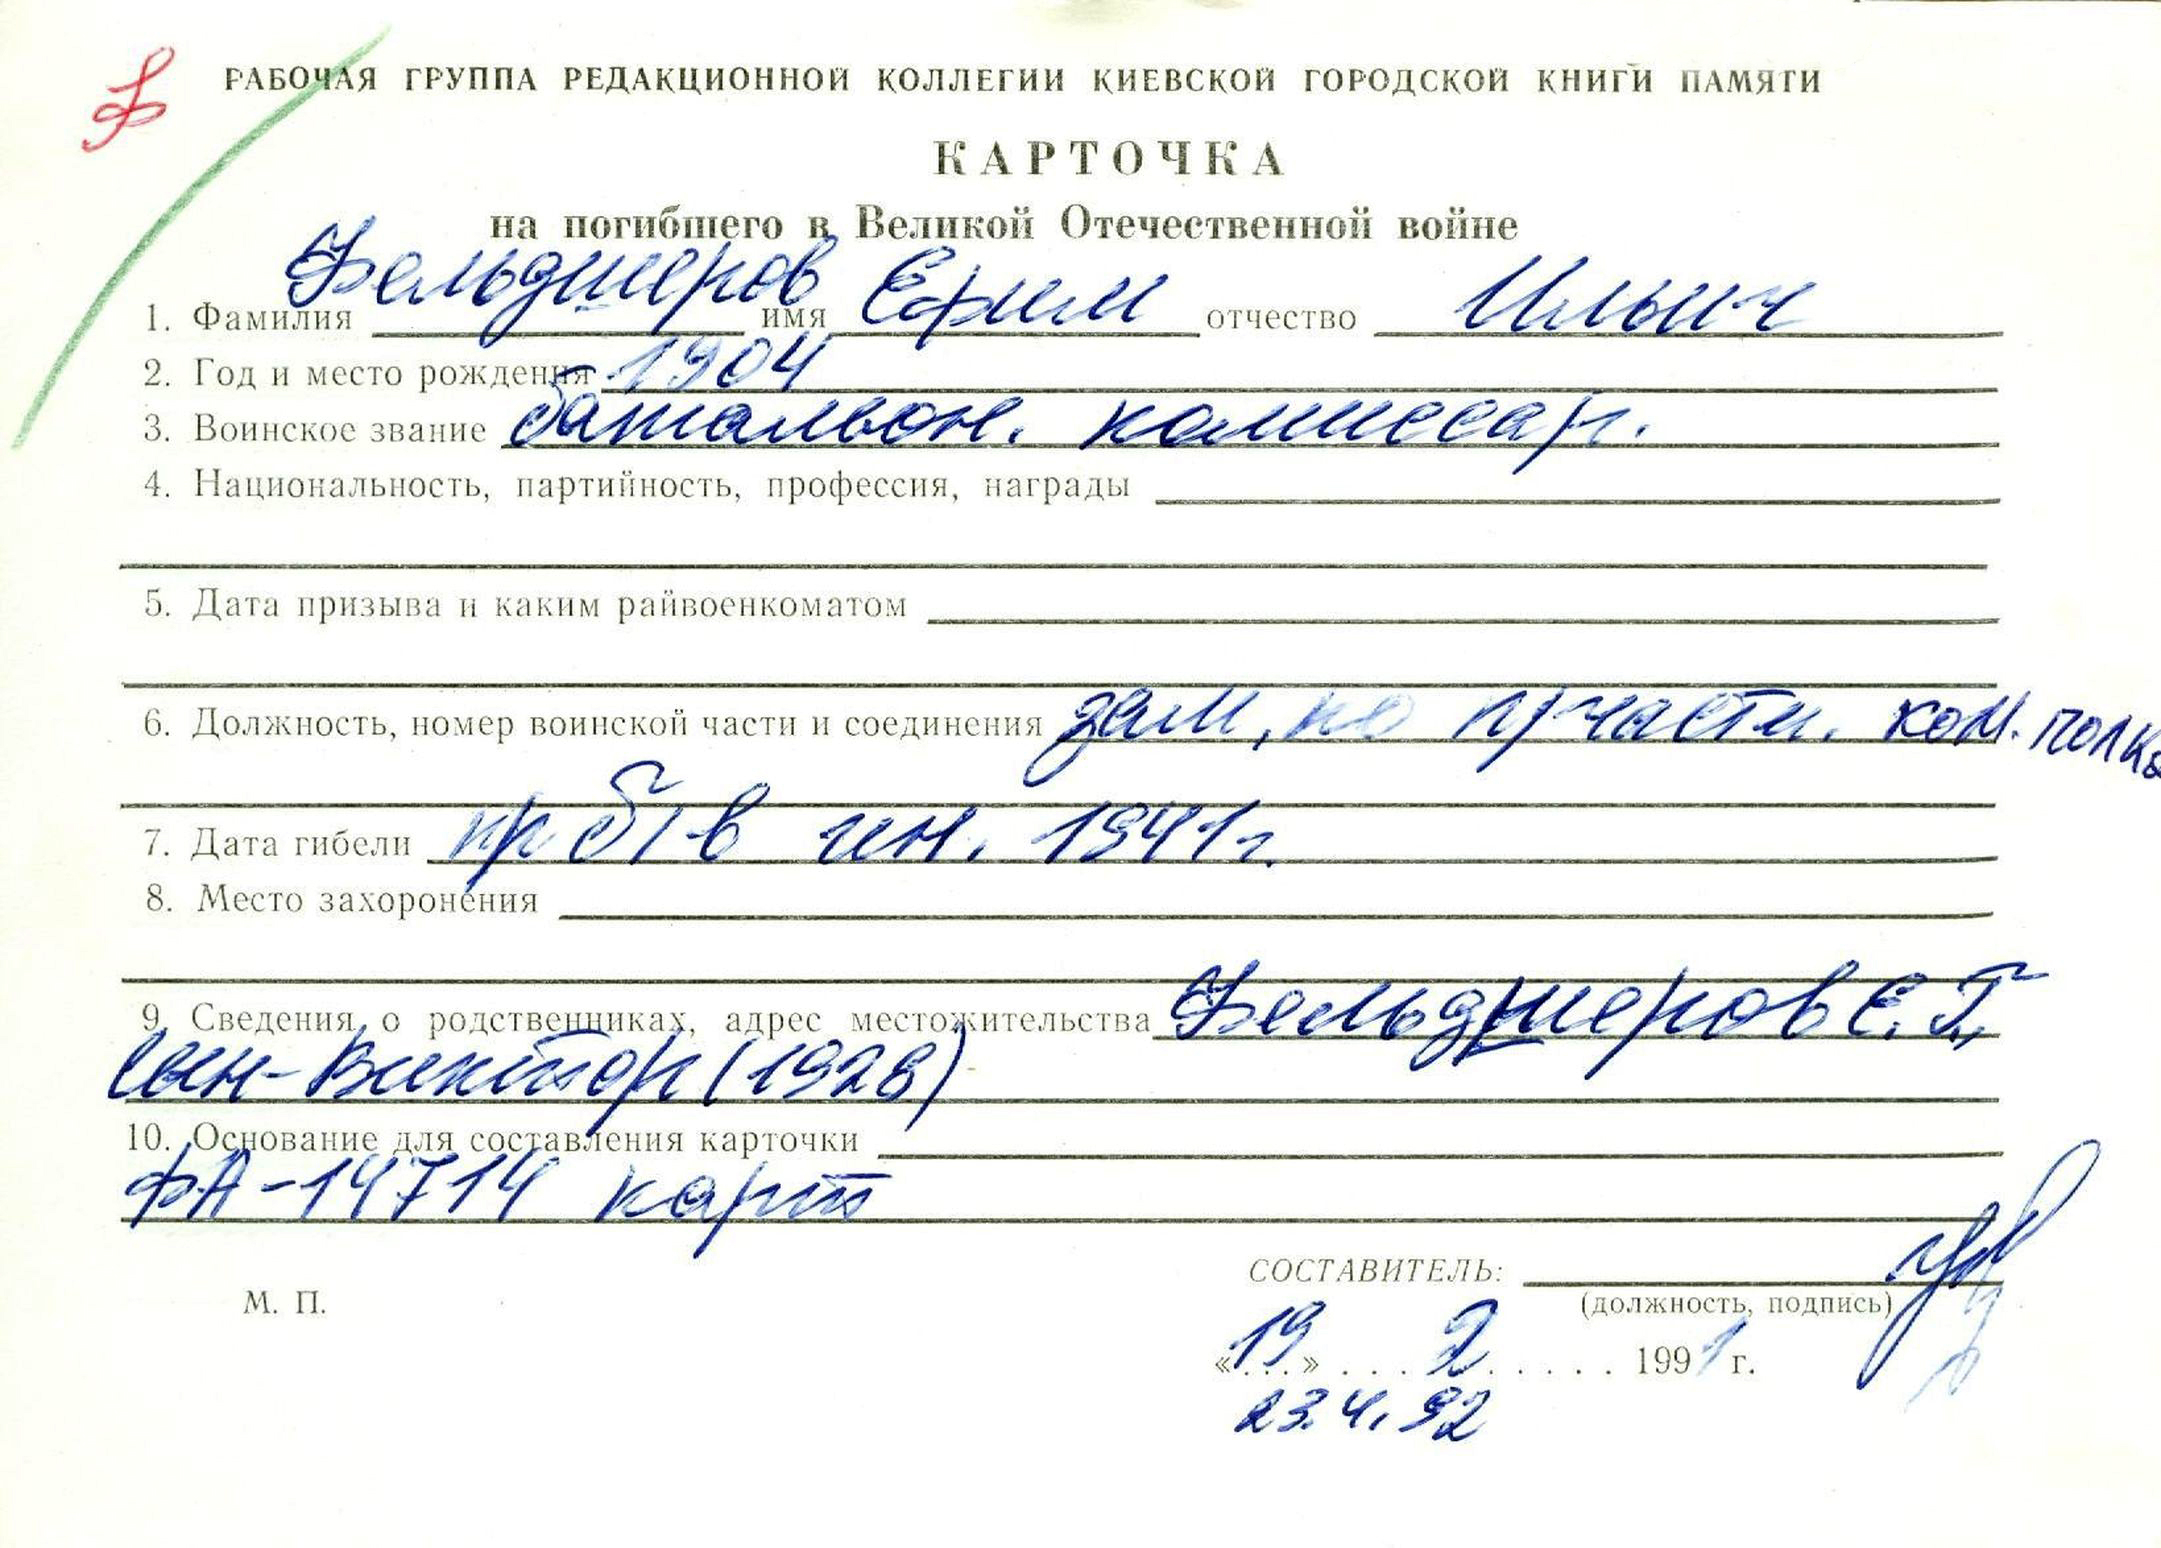 Ф
РАБОЧАЯ ГРУППА РЕДАКЦИОННОЙ КОЛЛЕГИИ КИЕВСКОЙ ГОРОДСКОЙ КНИГИ ПАМЯТИ
КАРТОЧКА
на погибшего в Великой Отечественной войне
1. Фамилия Фельдшеров имя Ефим отчество Ильич
2. Год и место рождения 1904
3. Воинское звание батальон. комиссар.
4. Национальность, партийность, профессия, награды
5. Дата призыва и каким райвоенкоматом
6. Должность, номер воинской части и соединения зам. по п/части. ком. полка
7. Дата гибели пр б/в 1941 г.
8. Место захоронения
9. Сведения о родственниках, адрес местожительства Фельдшеров Е. Г.
сын - Виктор (1928)
10. Основание для составления карточки
ФА-14714 карт
СОСТАВИТЕЛЬ:
М. П.
(должность, подпись)
«19» ... 2 ...... 1991 г.
23.4.92